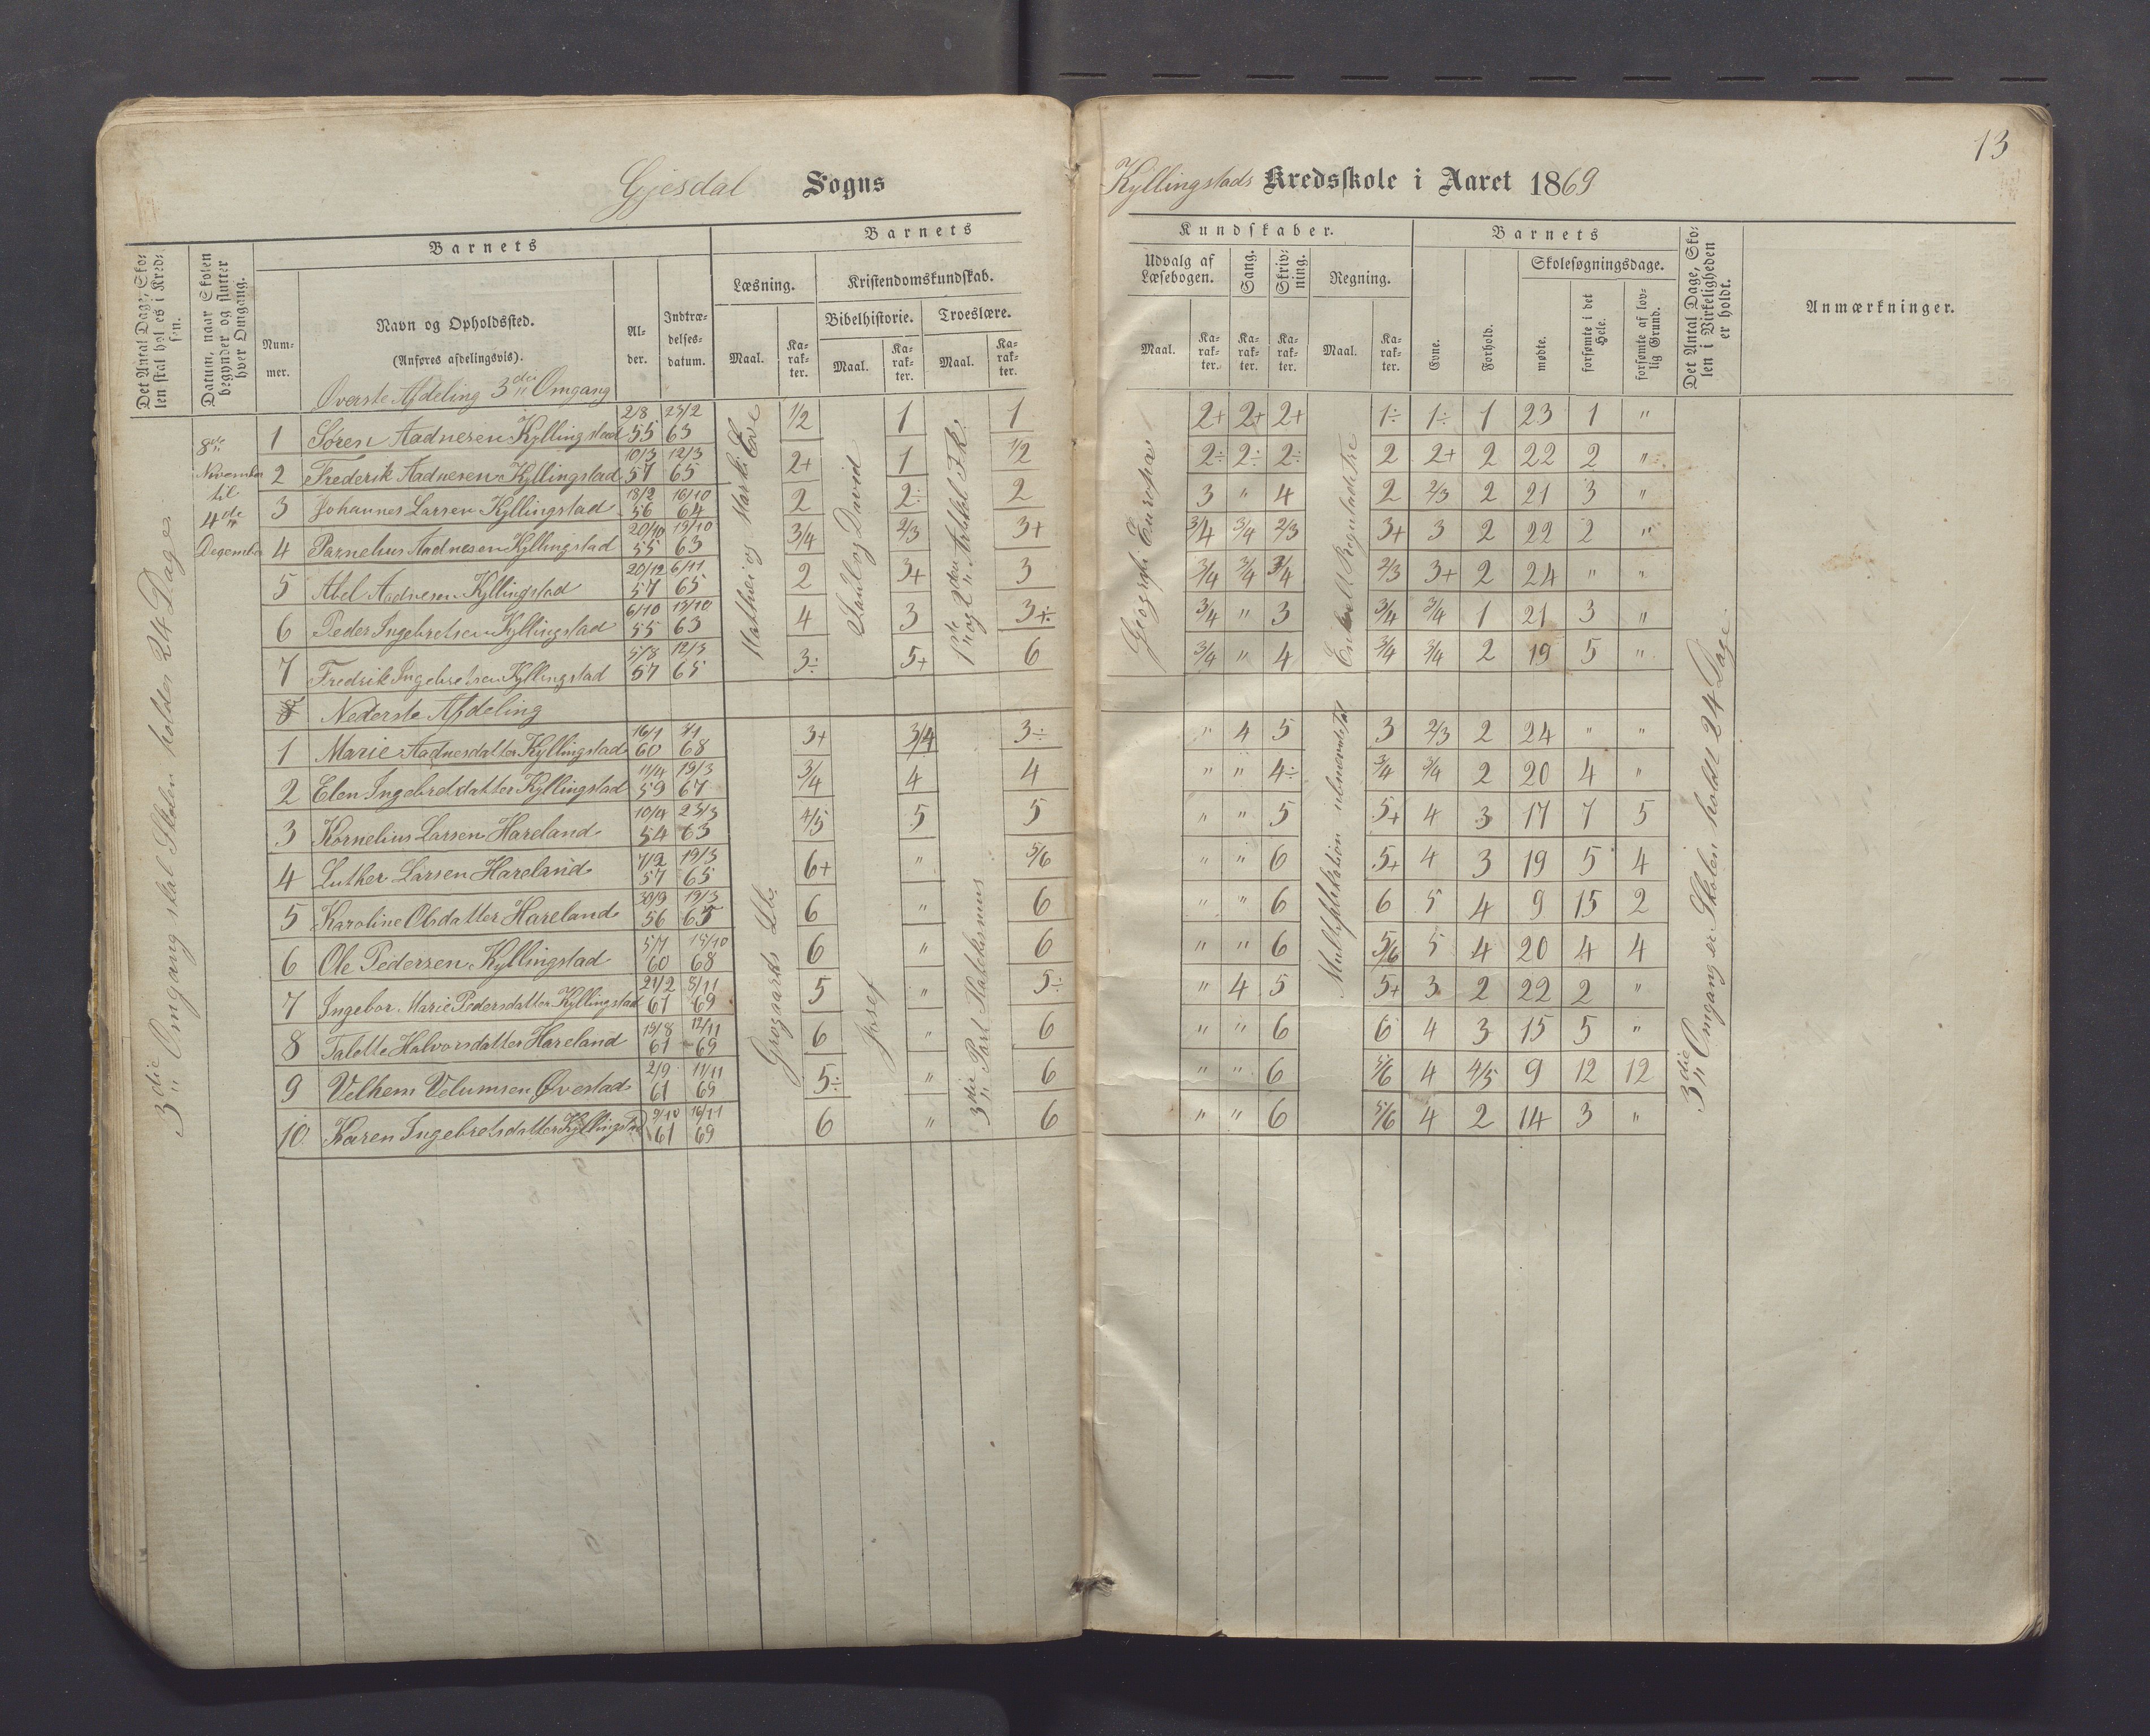 13
Gjesdal Sogns Kyllingstads Kredsskole i Aaret 1869
Det Antal Dage, Skolen skal holdes i Kredsen.
Datum, naar Skolen begynder og slutter hver Omgang.
Barnets
Nummer.
Navn og Opholdssted.
(Anføres afdelingsvis).
Alder.
Indtrædelsesdatum.
Barnets Kundskaber.
Læsning.
Maal.
Karakter.
Kristendomskundskab.
Bibelhistorie.
Maal.
Karakter.
Troeslære.
Maal.
Karakter.
Udvalg af Læsebogen.
Maal.
Karakter.
Sang.
Karakter.
Skrivning.
Karakter.
Regning.
Maal.
Karakter.
Barnets
Evne.
Forhold.
Skolesøgningsdage.
mødte.
forsømte i det Hele.
forsømte af lovlig Grund.
Det Antal Dage, Skolen i Virkeligheden er holdt.
Anmærkninger.
3die Omgang skal Skolen holdes 24 Dage
8de November til 4de Dezember
Øverste Afdeling 3die Omgang
1 Søren Aadnesen Kyllingstad 2/8 55 23/2 63 1/2 1 1 2+ 2+ 2+ 1÷ 1÷ 1 23 1 "
2 Frederik Aadnesen Kyllingstad 10/3 57 12/3 65 2+ 1 1/2 2÷ 2÷ 2÷ 2 2+ 2 22 2 "
3 Johannes Larsen Kyllingstad 18/2 56 16/10 64 2 2÷ 2 3 " 4 2 2/3 2 21 3 "
4 Parnelius Aadnesen Kyllingstad 20/10 55 19/10 63 3/4 2/3 3+ 3/4 3/4 2/3 3+ 3 2 22 2 "
5 Abel Aadnesen Kyllingstad 20/12 57 6/11 65 2 3+ 3 3/4 3/4 3/4 2/3 3+ 2 24 " "
6 Peder Ingebretsen Kyllingstad 6/10 55 13/10 63 4 3 3+÷ 3/4 " 3 3/4 3/4 1 21 3 "
7 Fredrik Ingebretsen Kyllingstad 5/8 57 12/3 65 3÷ 5+ 6 3/4 " 4 3/4 3/4 2 19 5 "
Matthæi og Marki Evе
Saul og David
1ste og 2den Artikel F.k.
Geografi Europa
Enkelt Reguladetre
Nederste Afdeling
1 Marie Aadnesdatter Kyllingstad 16/1 60 7/1 68 3+ 3/4 3÷ " 4 5 3 2/3 2 24 " "
2 Elen Ingebretdatter Kyllingstad 11/4 59 19/3 67 3/4 4 4 " " 4÷ 3/4 3/4 2 20 4 "
3 Kornelius Larsen Hareland 10/4 54 23/3 63 4/5 5 5 " " 5 5+ 4 3 17 7 5
4 Luther Larsen Hareland 7/2 57 19/3 65 6+ " 5/6 " " 6 5+ 4 3 19 5 4
5 Karoline Olsdatter Hareland 30/9 56 19/3 65 6 " 6 " " 6 6 5 4 9 15 2
6 Ole Pedersen Kyllingstad 5/7 60 15/10 68 6 " 6 " " 6 5/6 5 4 20 4 4
7 Ingebor Marie Pedersdatter Kyllingstad 21/2 61 8/11 69 5 " 5÷ " 4 5 5+ 3 2 22 2 "
8 Talette Halvorsdatter Hareland 15/8 61 12/11 69 6 " 6 " " 6 6 4 3 15 5 "
9 Velhem Velumsen Øvestad 2/9 61 11/11 69 5÷ " 6 " " 6 5/6 4 4/5 9 12 12
10 Karen Ingebretsdatter Kyllingstad 9/10 61 16/11 69 6 " 6 " " 6 5/6 4 2 14 3 "
Grogaards Lb.
Josef
3die Part Katekismus
Multiplikation ubenævnte Tal
3die Omgang er Skolen holdt 24 Dage.